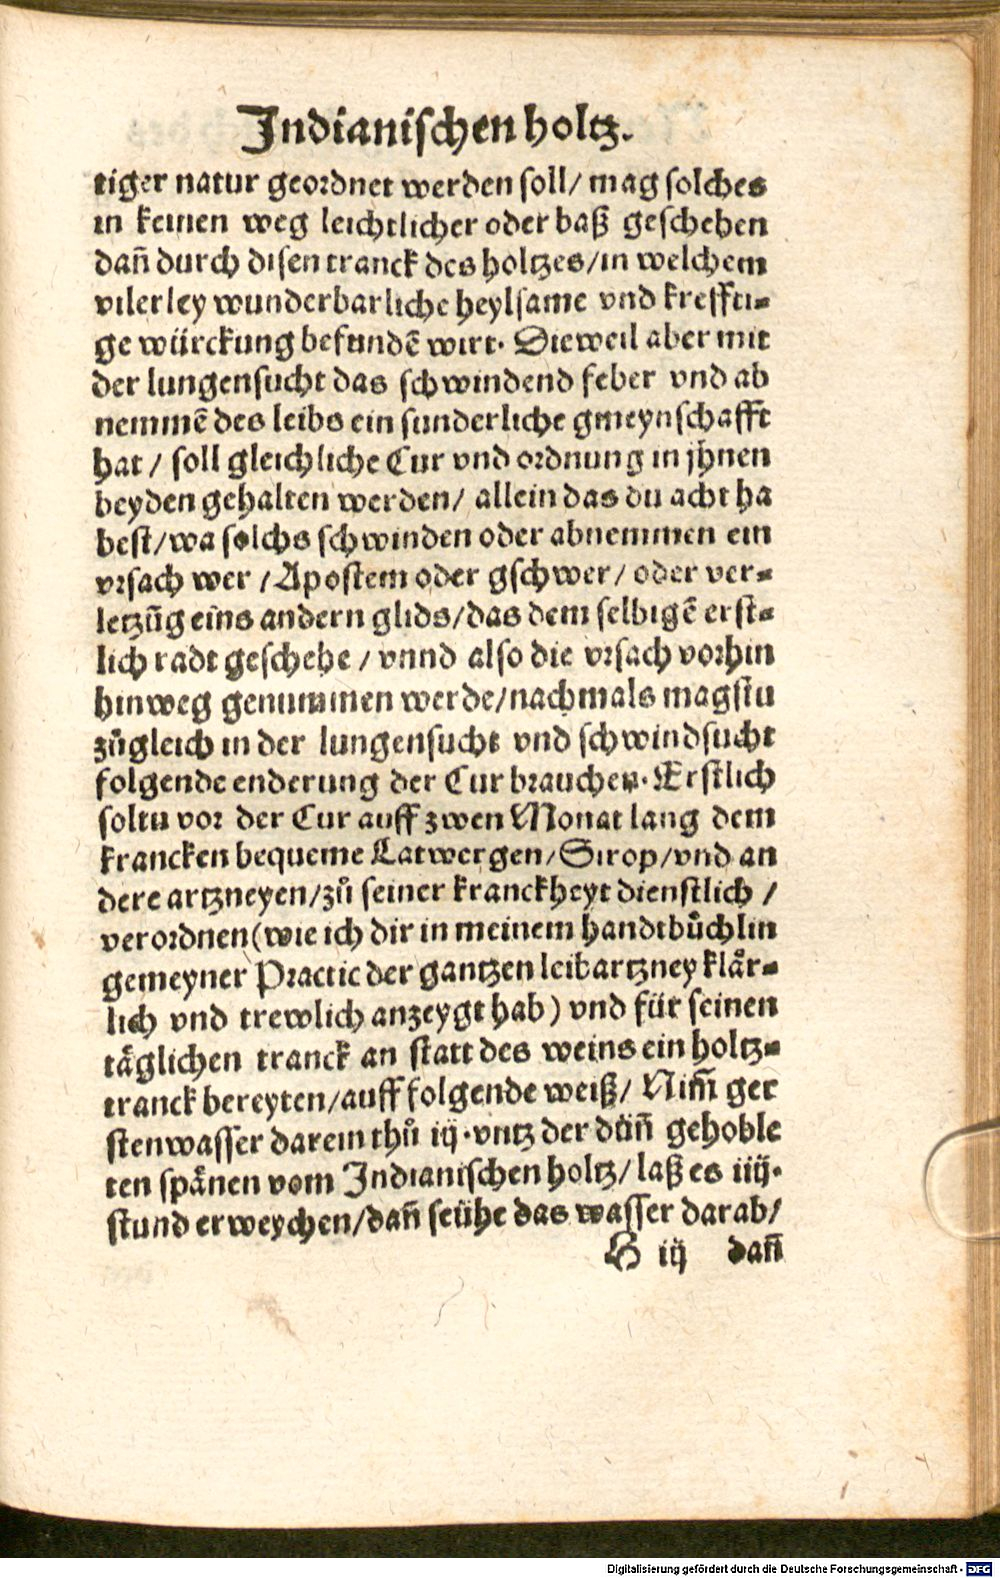 Indianischen holtz.
tiger natur geordnet werden soll/ mag solches
in keinen weg leichtlicher oder baß geschehen
dañ durch disen tranck des holtzes/in welchem
vilerley wunderbarliche heylsame vnd kreffti⸗
ge würckung befundẽ wirt. Dieweil aber mit
der lungensucht das schwindend feber vnd ab
nemmẽ des leibs ein sunderliche gmeynschafft
hat / soll gleichliche Cur vnd ordnung in jhnen
beyden gehalten werden/ allein das du acht ha
best/wa solchs schwinden oder abnemmen ein
vrsach wer /Apostem oder gschwer/ oder ver⸗
letzũg eins andern glids/das dem selbigẽ erst⸗
lich radt geschehe / vnnd also die vrsach vorhin
hinweg genummen werde/nachmals magstu
zůgleich in der lungensucht vnd schwindsucht
folgende enderung der Cur brauchen. Erstlich
soltu vor der Cur auff zwen Monat lang dem
krancken bequeme Latwergen/Sirop/vnd an
dere artzneyen/zů seiner kranckheyt dienstlich /
verordnen(wie ich dir in meinem handtbůchlin
gemeyner Practic der gantzen leibartzney klår⸗
lich vnd trewlich anzeygt hab) vnd für seinen
tåglichen tranck an statt des weins ein holtz⸗
tranck bereyten/auff folgende weiß/ Nim̃ ger
stenwasser darein thů iij. vntz der düñ gehoble
ten spånen vom Indianischen holtz/ laß es iiij.
stund erweychen/dañ seühe das wasser darab/
H iij dañ
Digitalisierung gefördert durch die Deutsche Forschungsgemeinschaft - DFG